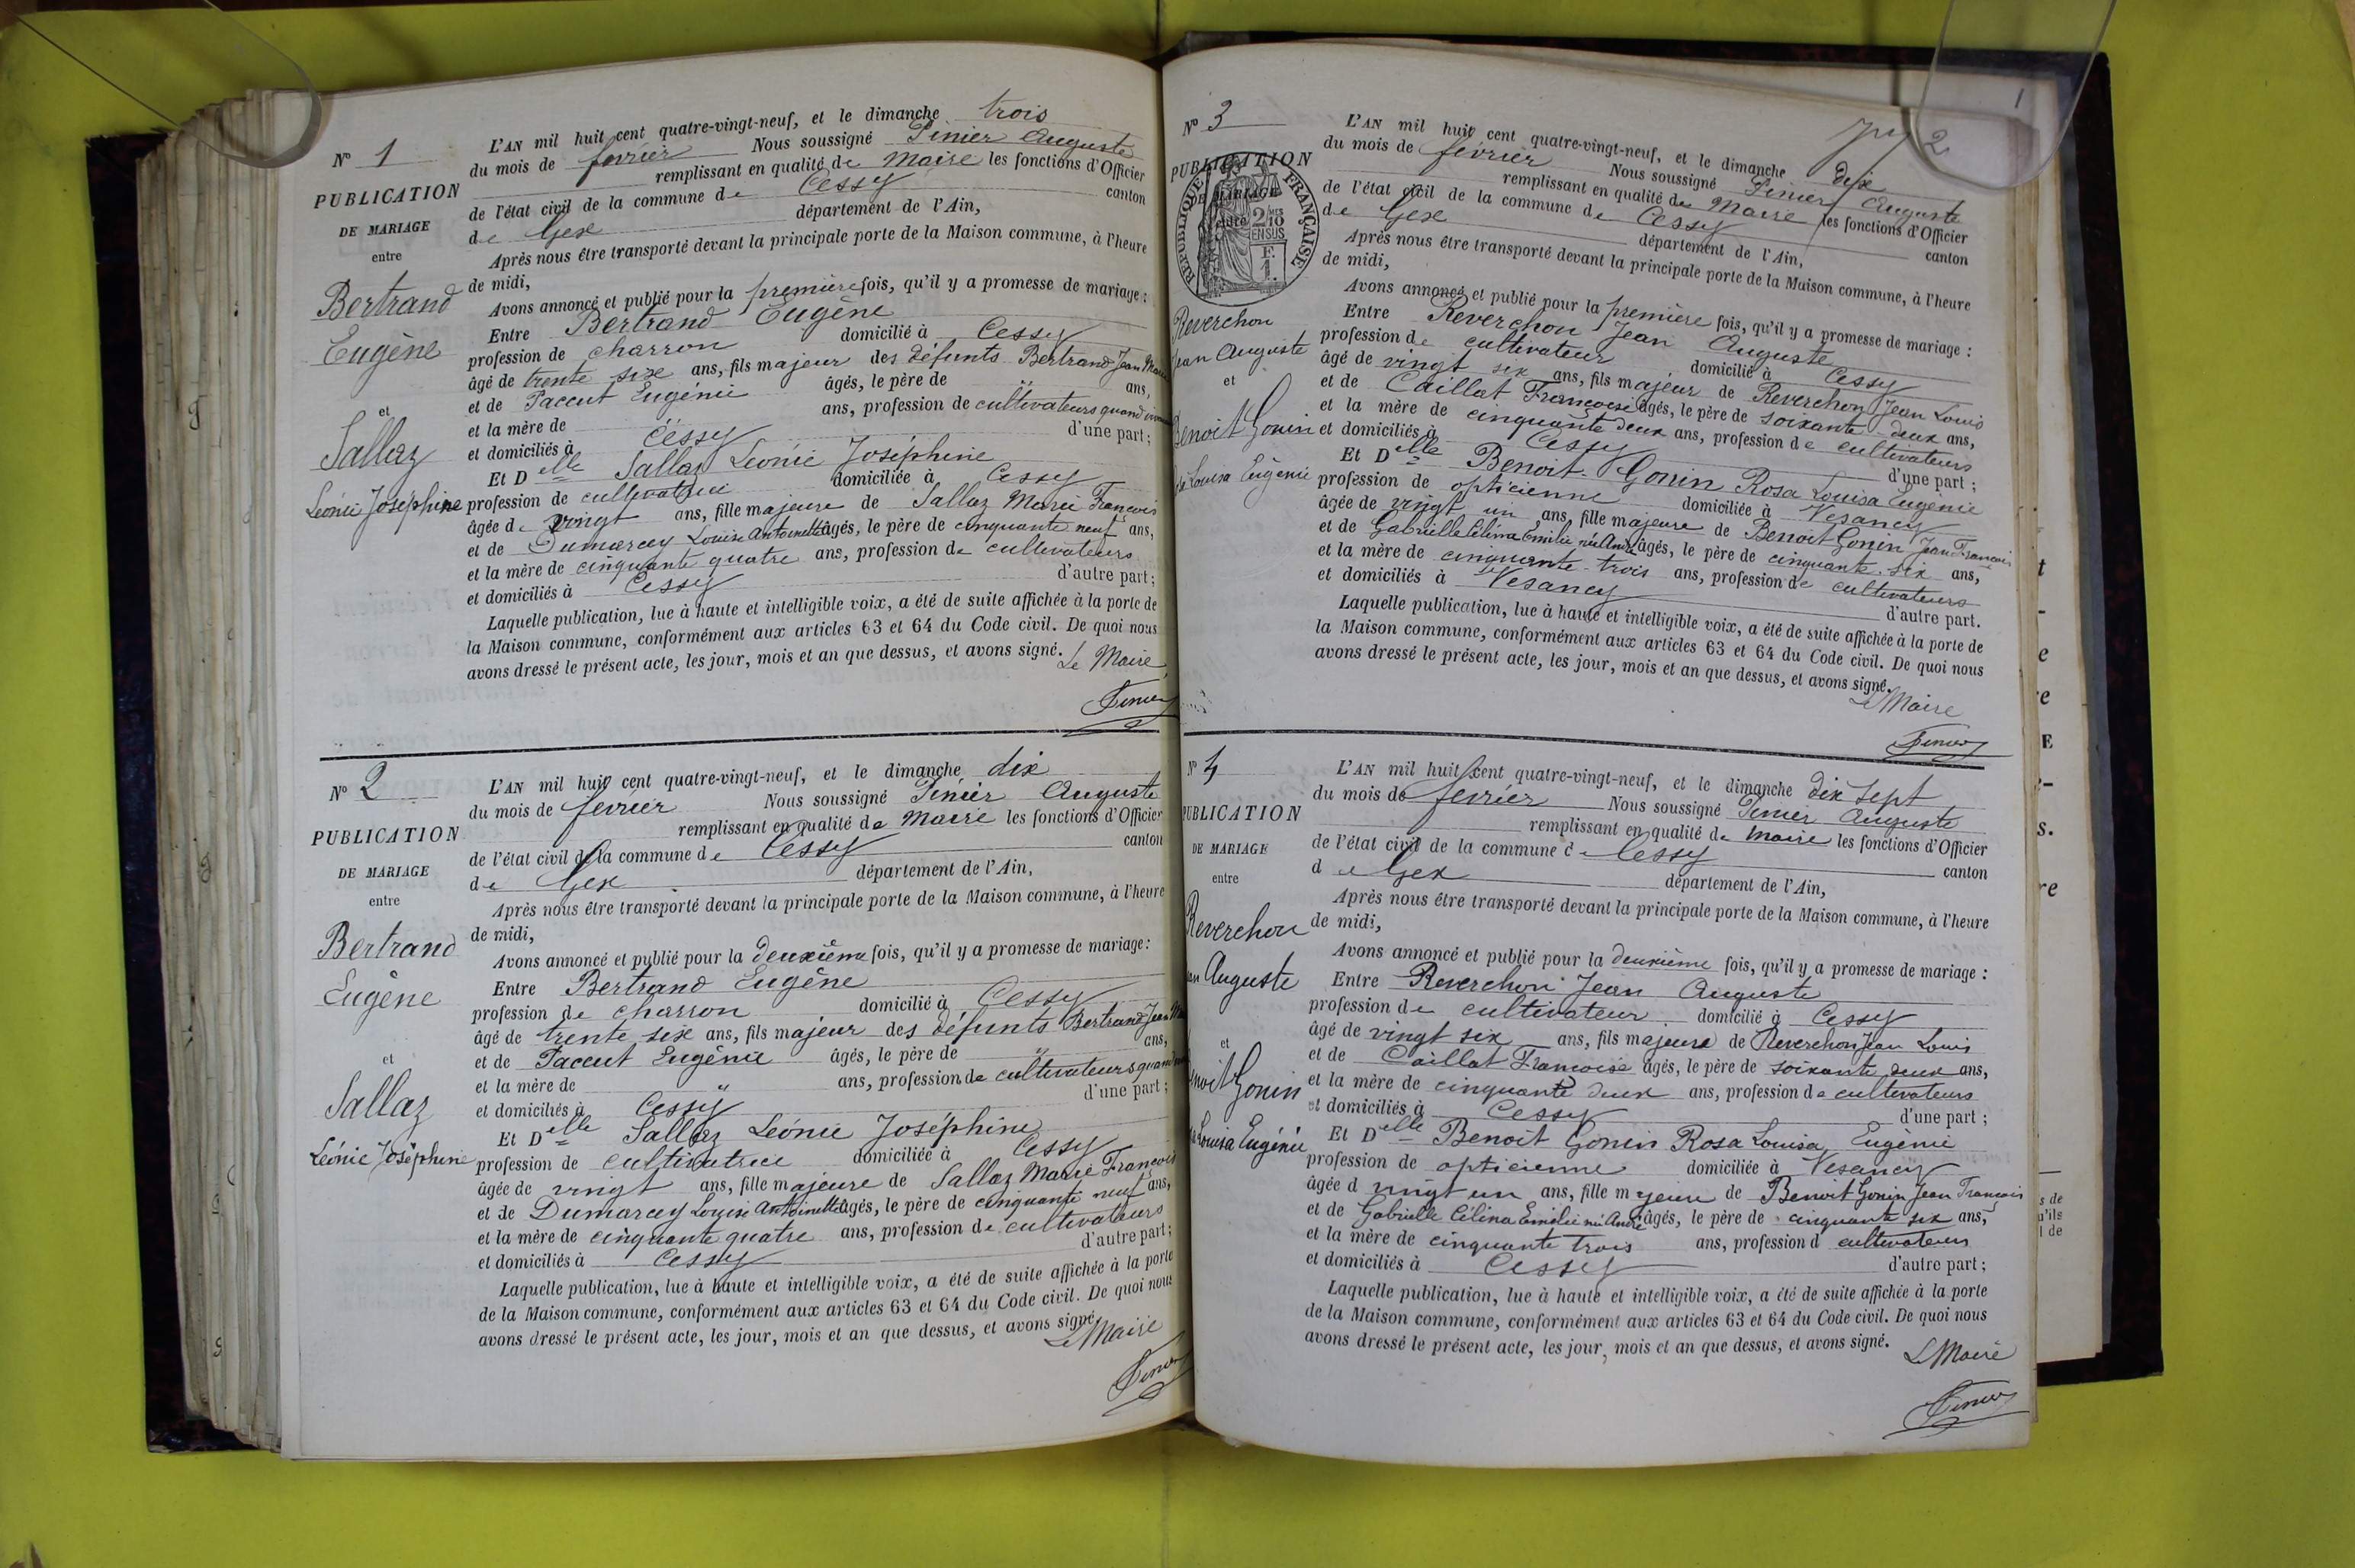 N° 1
PUBLICATION
DE MARIAGE
entre
Bertrand
Eugène
et
Sallaz
Léonie Joséphine
L'AN mil huit cent quatre-vingt-neuf, et le dimanche trois
du mois de février Nous soussigné Penier Auguste
remplissant en qualité de Maire les fonctions d'Officier
de l'état civil de la commune de Cessy canton
de Gex département de l'Ain,
Après nous être transporté devant la principale porte de la Maison commune, à l'heure
de midi,
Avons annoncé et publié pour la première fois, qu'il y a promesse de mariage :
Entre Bertrand Eugène
profession de charron domicilié à Cessy
âgé de trente six ans, fils majeur des défunts Bertrand Jean
et de Paccut Eugénie âgés, le père de " ans,
et la mère de ans, profession de cultivateurs quand
et domiciliés à Cessy d'une part ;
Et Delle Sallaz Léonie Joséphine
profession de cultivatrice domiciliée à Cessy
âgée de vingt ans, fille majeure de Sallaz Marie François
et de Dumarcey Louise Antoinette âgés, le père de cinquante neuf ans,
et la mère de cinquante quatre ans, profession de cultivateurs
et domiciliés à Cessy d'autre part ;
Laquelle publication, lue à haute et intelligible voix, a été de suite affichée à la porte de
la Maison commune, conformément aux articles 63 et 64 du Code civil. De quoi nous
avons dressé le présent acte, les jour, mois et an que dessus, et avons signé.
Le Maire
Penier
N° 2
PUBLICATION
DE MARIAGE
entre
Bertrand
Eugène
et
Sallaz
Léonie Joséphine
L'AN mil huit cent quatre-vingt-neuf, et le dimanche dix
du mois de février Nous soussigné Penier Auguste
remplissant en qualité de Maire les fonctions d'Officier
de l'état civil de la commune de Cessy canton
de Gex département de l'Ain,
Après nous être transporté devant la principale porte de la Maison commune, à l'heure
de midi,
Avons annoncé et publié pour la deuxième fois, qu'il y a promesse de mariage :
Entre Bertrand Eugène
profession de charron domicilié à Cessy
âgé de trente six ans, fils majeur des défunts Bertrand Jean
et de Paccut Eugénie âgés, le père de " ans,
et la mère de " ans, profession de cultivateurs quand
et domiciliés à Cessy d'une part ;
Et Delle Sallaz Léonie Joséphine
profession de cultivatrice domiciliée à Cessy
âgée de vingt ans, fille majeure de Sallaz Marie François
et de Dumarcey Louise Antoinette âgés, le père de cinquante neuf ans,
et la mère de cinquante quatre ans, profession de cultivateurs
et domiciliés à Cessy d'autre part ;
Laquelle publication, lue à haute et intelligible voix, a été de suite affichée à la porte
de la Maison commune, conformément aux articles 63 et 64 du Code civil. De quoi nous
avons dressé le présent acte, les jour, mois et an que dessus, et avons signé.
Le Maire
Penier
1
2
N° 3
PUBLICATION
DE MARIAGE
REPUBLIQUE FRANÇAISE
2/10 EN SUS
F. 1.
Reverchon
Jean Auguste
et
Benoit Gonin
Louisa Eugénie
L'AN mil huit cent quatre-vingt-neuf, et le dimanche dix
du mois de février Nous soussigné Penier Auguste
remplissant en qualité de Maire les fonctions d'Officier
de l'état civil de la commune de Cessy canton
de Gex département de l'Ain,
Après nous être transporté devant la principale porte de la Maison commune, à l'heure
de midi,
Avons annoncé et publié pour la première fois, qu'il y a promesse de mariage :
Entre Reverchon Jean Auguste
profession de cultivateur domicilié à Cessy
âgé de vingt six ans, fils majeur de Reverchon Jean Louis
et de Caillat Françoise âgés, le père de soixante deux ans,
et la mère de cinquante deux ans, profession de cultivateurs
et domiciliés à Cessy d'une part ;
Et Delle Benoit-Gonin Rosa Louisa Eugénie
profession de opticienne domiciliée à Vesancy
âgée de vingt un ans, fille majeure de Benoit Gonin Jean François
et de Gabrielle Célina Emilie née André âgés, le père de cinquante six ans,
et la mère de cinquante trois ans, profession de cultivateurs
et domiciliés à Vesancy d'autre part.
Laquelle publication, lue à haute et intelligible voix, a été de suite affichée à la porte de
la Maison commune, conformément aux articles 63 et 64 du Code civil. De quoi nous
avons dressé le présent acte, les jour, mois et an que dessus, et avons signé.
Le Maire
Penier
N° 4
PUBLICATION
DE MARIAGE
entre
Reverchon
Auguste
et
Gonin
Louisa Eugénie
L'AN mil huit cent quatre-vingt-neuf, et le dimanche dix sept
du mois de février Nous soussigné Penier Auguste
remplissant en qualité de Maire les fonctions d'Officier
de l'état civil de la commune de Cessy canton
de Gex département de l'Ain,
Après nous être transporté devant la principale porte de la Maison commune, à l'heure
de midi,
Avons annoncé et publié pour la deuxième fois, qu'il y a promesse de mariage :
Entre Reverchon Jean Auguste
profession de cultivateur domicilié à Cessy
âgé de vingt six ans, fils majeure de Reverchon Jean Louis
et de Caillat Françoise âgés, le père de soixante deux ans,
et la mère de cinquante deux ans, profession de cultivateurs
et domiciliés à Cessy d'une part ;
Et Delle Benoit Gonin Rosa Louisa Eugénie
profession de opticienne domiciliée à Vesancy
âgée d vingt un ans, fille majeure de Benoit Gonin Jean François
et de Gabrielle Célina Emilie née André âgés, le père de cinquante six ans,
et la mère de cinquante trois ans, profession d cultivateurs
et domiciliés à Cessy d'autre part ;
Laquelle publication, lue à haute et intelligible voix, a été de suite affichée à la porte
de la Maison commune, conformément aux articles 63 et 64 du Code civil. De quoi nous
avons dressé le présent acte, les jour, mois et an que dessus, et avons signé.
Le Maire
Penier